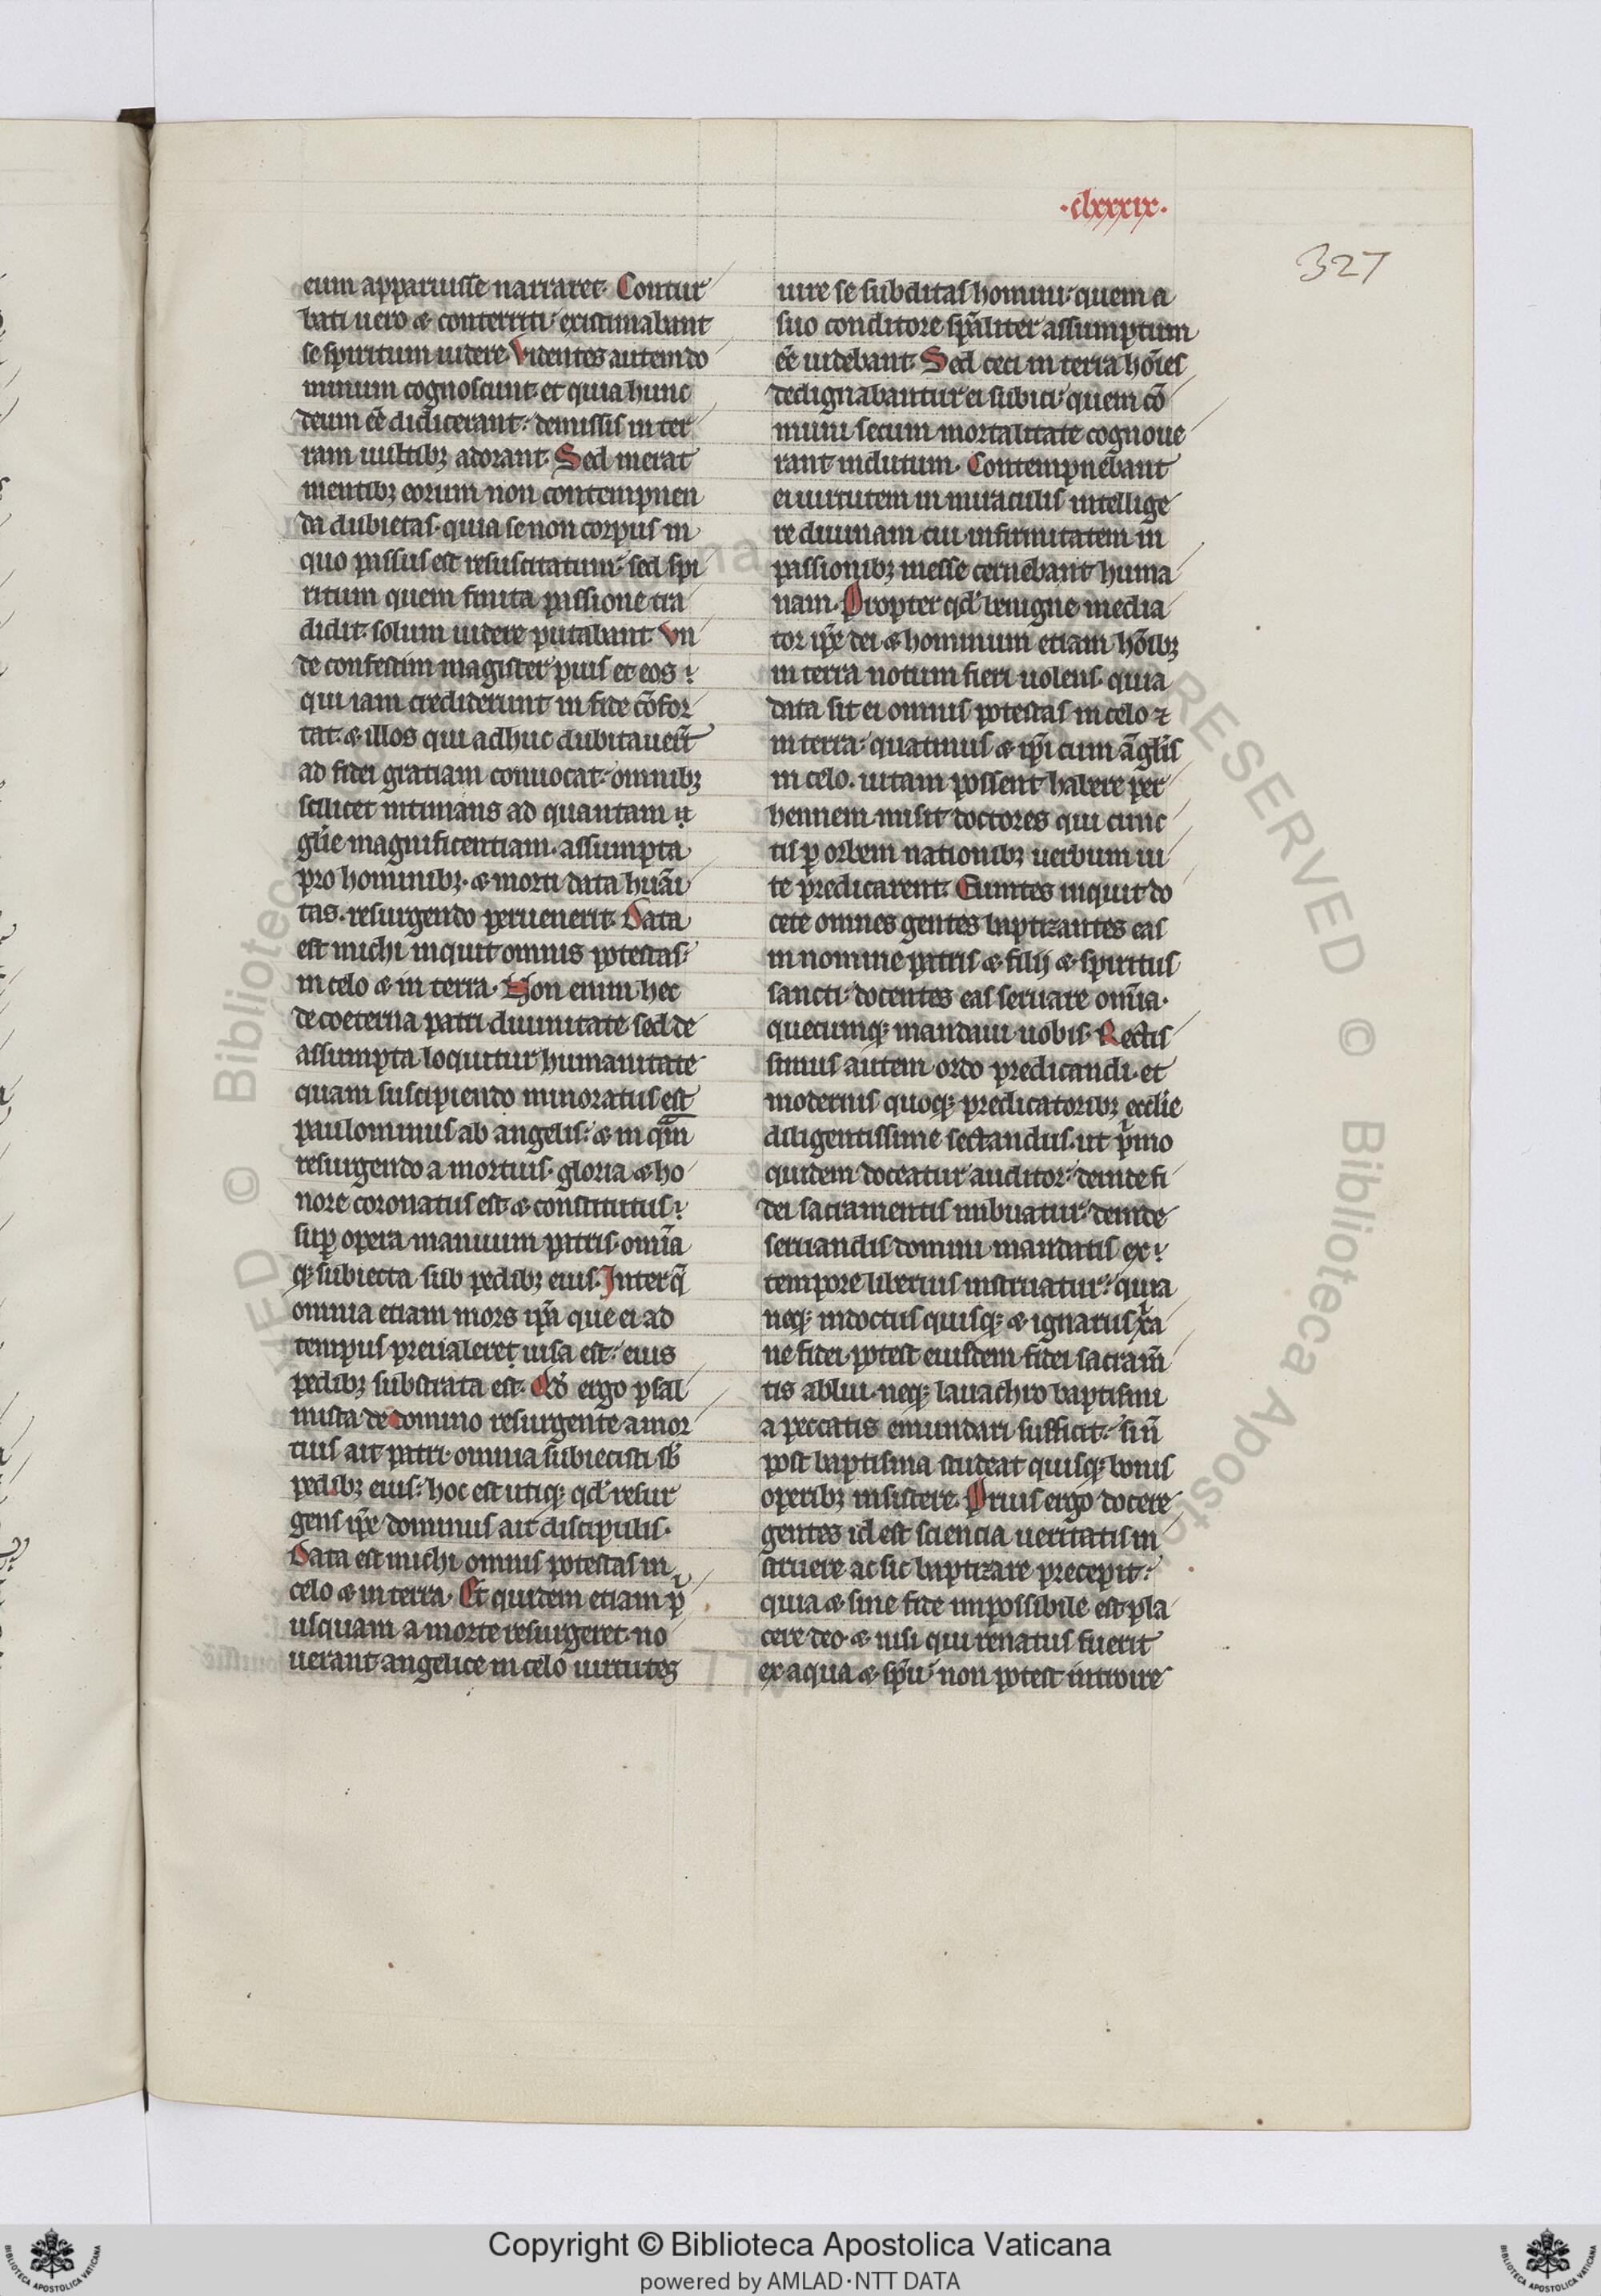 ·clxxxix·
327
eum apparuisse narraret. Contur
bati uero & conterriti existimabant
se spiritum uidere. Videntes autem do
minum cognoscunt. et quia hunc
deum eē didicerant: demissis in ter
ram uultibꝫ adorant. Sed inerat
mentibꝫ eorum non contempnen
da dubietas. quia se non corpus in
quo passus est resuscitatum: sed spi
ritum quem finita passione tra
didit. solum uidere putabant. Vn
de confestim magister pius et eos
qui iam crediderunt in fide cōfor
tat. & illos qui adhuc dubitauert̄
ad fidei gratiam conuocat: omnibꝫ
scilicet intimans ad quantam
gl̄ie magnificentiam. assumpta
pro hominibꝫ. & morti data huāi
tas. resurgendo peruenerit. Data
est michi inquit omnis potestas:
in celo & in terra. Non enim hec
de coeterna patri diuinitate sed de
assumpta loquitur humanitate
quam suscipiendo minoratus est
paulominus ab angelis: & in qm̄
resurgendo a mortuis. gloria & ho
nore coronatus est. & constitutus
suꝑ opera manuum patris. omīa
qꝫ subiecta sub pedibꝫ eius. Inter q̄
omnia etiam mors ip̄a que ei ad
tempus preualeret uisa est: eius
pedibꝫ substrata est. Qd̄ ergo psal
mista de domino resurgente a mor
tuis ait patri. omnia subiecisti sb̄
pedibꝫ eius: hoc est utiqꝫ qd̄ resur
gens ip̄e dominus ait discipulis.
Data est michi omnis potestas in
celo & in terra. Et quidem etiam p
usquam a morte resurgeret. no
uerant angelice in celo uirtutes
uire se subditas homini. quem a
suo conditore spāliter assumptum
eē uidebant. Sed ceci in terra hoīes
dedignabantur ei subici. quem cō
muni secum mortalitate cognoue
rant indutum. Contempnebant
ei uirtutem in miraculis intellige
re diuinam cui infirmitatem in
passionibꝫ inesse cernebant huma
nam. Propter qd̄ benigne media
tor ip̄e dei & hominum etiam hōibꝫ
in terra notum fieri uolens. quia
data sit ei omnis potestas in celo ⁊
in terra: quatinus & ip̄i cum āglis
in celo. uitam possent habere per
hennem. misit doctores qui cunc
tis ꝑ orbem nationibꝫ uerbum ui
te predicarent. Euntes inquit do
cete omnes gentes baptizantes eas
in nomine patris & filij & spiritus
sancti: docentes eas seruare omīa.
quecumqꝫ mandaui uobis. Rectis
simus autem ordo predicandi. et
modernis quoqꝫ predicatoribꝫ eccl̄ie
diligentissime sectandus. ut pͥmo
quidem doceatur auditor: deinde fi
dei sacramentis imbuatur. deinde
seruandis domini mandatis ex
tempore liberius instruatur: quia
neqꝫ indoctus quisqꝫ & ignarus xͥa
ne fidei. potest eiusdem fidei sacram̄
tis ablui. neqꝫ lauachro baptismi
a peccatis emundari sufficit: si n̄
post baptisma studeat quisqꝫ bonis
operibꝫ insistere. Prius ergo docere
gentes id est sciencia ueritatis in
struere ac sic baptizare precepit:
quia & sine fide impossibile est pla
cere deo. & nisi qui renatus fuerit
ex aqua & spū non potest introire
Copyright © Biblioteca Apostolica Vaticana
powered by AMLAD·NTT DATA